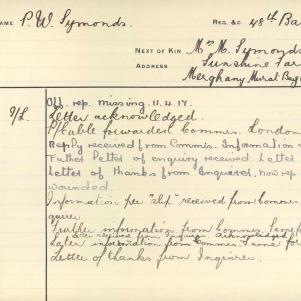 NAME P. W. Symonds. REG. &C 48th Ba
NEXT OF KIN Mrs M. Symonds
ADDRESS Sunshine Far
Merghany Murat Bay
I/L. Off. rep. missing. 11.4.17.
Letter acknowledged.
P/Cable forwarded Commrs. London
Reply received from Commis. Information
Futher letter of enquiry received. Letter
Letter of thanks from Enquirers, now rep.
wounded.
Information per "slip" received from Commrs
quirer.
Further information from Commrs. Same f
Letter received from Enquirer acknowledged
Later information from Commrs. Same for
Letter of thanks from Inquirer.